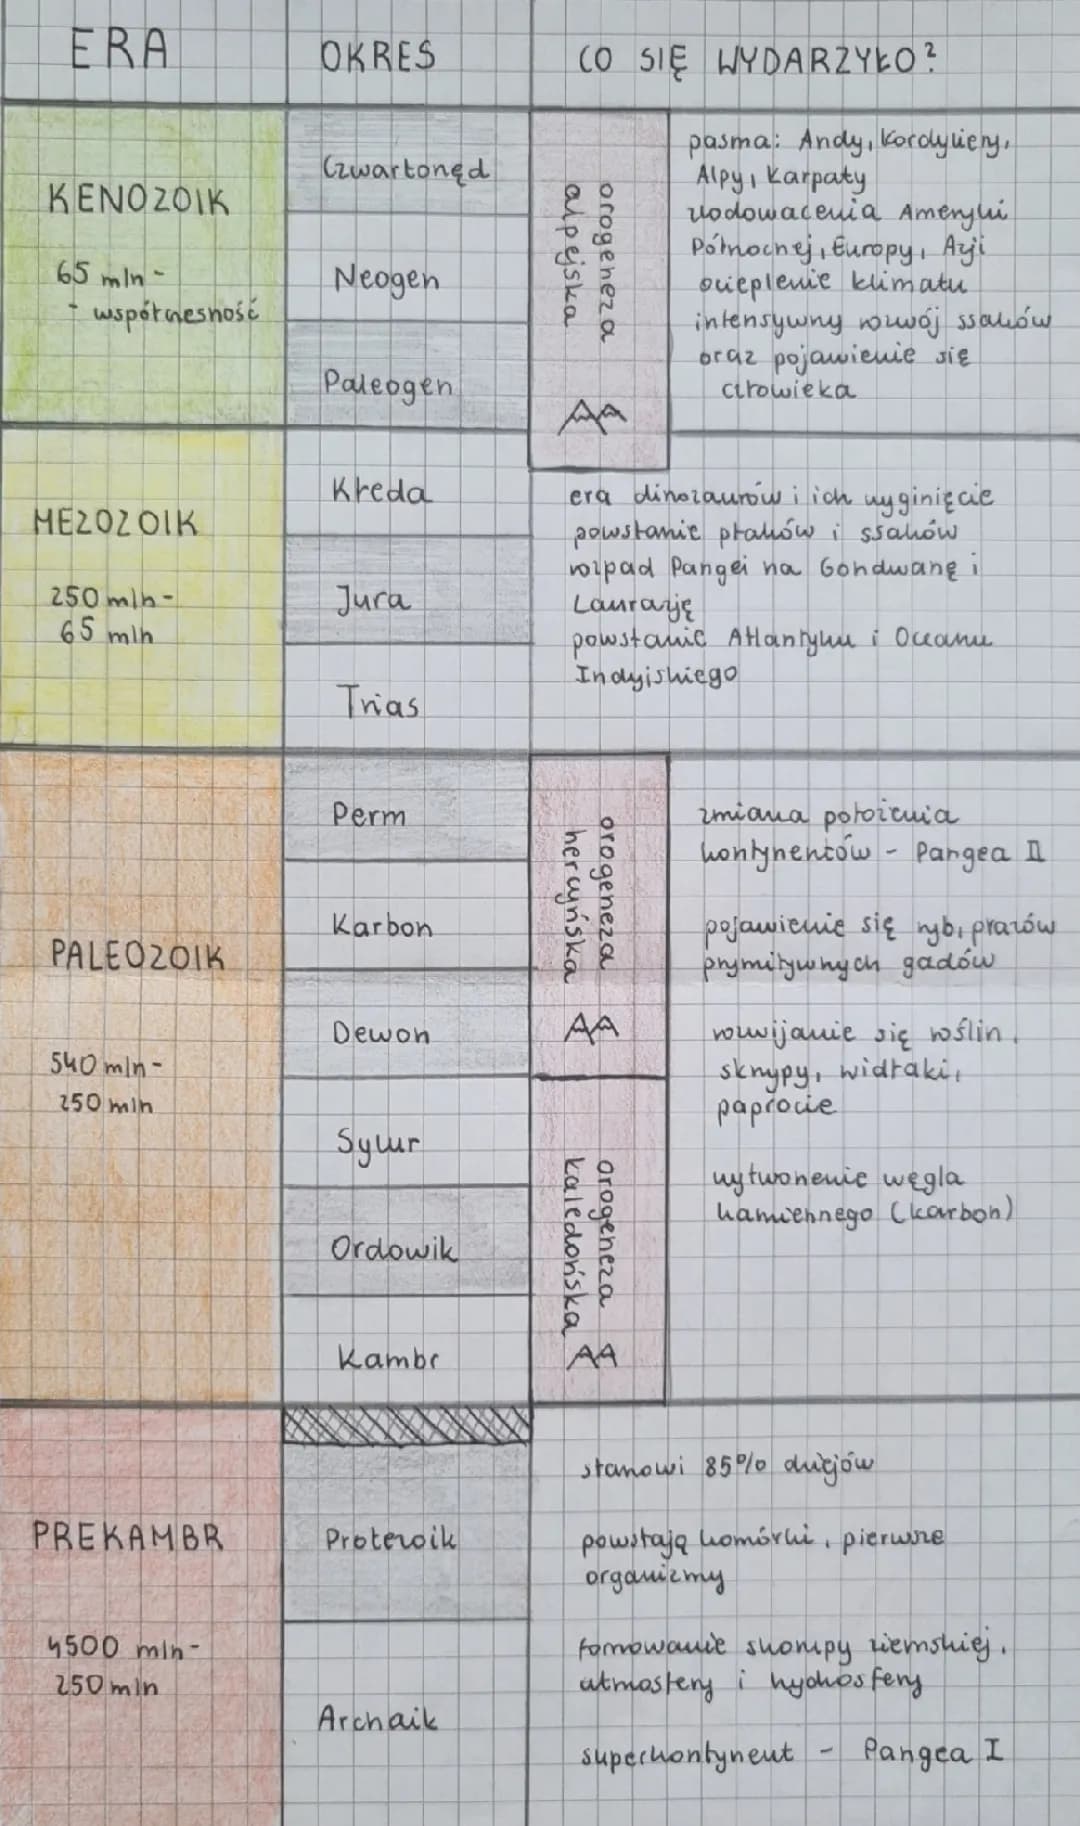 ERA
OKRES
CO SIĘ WYDARZYŁO?
KENOZOIK
65 mln -
- współczesność
Czwartorzęd
Neogen
Paleogen
orogeneza
alpejska
pasma: Andy, Kordyliery,
Alpy, Karpaty
zlodowacenia Ameryki
Północnej, Europy, Azji
ocieplenie klimatu
intensywny rozwój ssaków
oraz pojawienie się
człowieka
MEZOZOIK
250 mln -
65 mln
Kreda
Jura
Trias
era dinozaurów i ich wyginięcie
powstanie ptaków i ssaków
rozpad Pangei na Gondwanę i
Laurazję
powstanie Atlantyku i Oceanu
Indyjskiego
PALEOZOIK
540 mln -
250 mln
Perm
Karbon
Dewon
Sylur
Ordowik
Kambr
orogeneza
hercyńska
orogeneza
kaledońska
zmiana położenia
kontynentów - Pangea II
pojawienie się ryb, płazów
prymitywnych gadów
rozwijanie się roślin,
skrzypy, widłaki,
paprocie
wytworzenie węgla
kamiennego (karbon)
PREKAMBR
4500 mln -
250 mln
Proterozoik
Archaik
stanowi 85% dziejów
powstają komórki, pierwsze
organizmy
formowanie skorupy ziemskiej,
atmosfery i hydrosfery
superkontynent - Pangea I